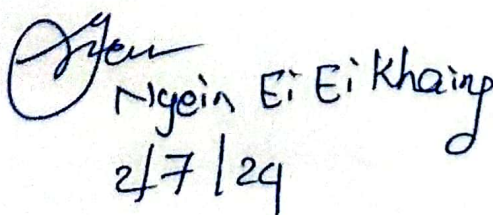 Nyein Ei Ei Khaing
2/7/24